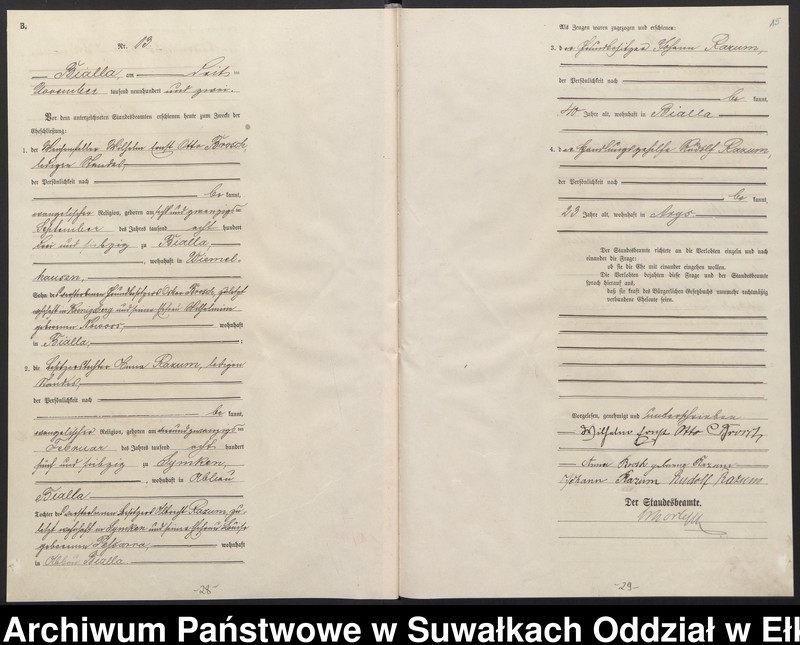 B.
Nr. 13.
Bialla, am
November tausend neunhundert und zwei.
Vor dem unterzeichneten Standesbeamten erschienen heute zum Zwecke der
Eheschließung:
1. der Weichensteller Wilhelm Ernst Otto
ledigen Standes,
der Persönlichkeit nach
be kannt,
evangelischer Religion, geboren am und zwanzigsten
September des Jahres tausend acht hundert
drei und siebzig zu Bialla,
, wohnhaft in Wiemel-
hausen.
Sohn des verstorbenen Grundbesitzers zuletzt
wohnhaft in und seiner Ehefrau Wilhelmine
geborenen wohnhaft
in Bialla,
;
2. die Besitzerstochter Anna Razum, ledigen
Standes,
der Persönlichkeit nach
be kannt,
evangelischer Religion, geboren am
Februar des Jahres tausend acht hundert
fünf und siebzig zu Symken,
, wohnhaft in Abbau
Bialla
Tochter des verstorbenen Besitzers Razum, zu-
letzt wohnhaft in Symken und seiner Ehefrau
geborenen wohnhaft
in Abbau Bialla.
-28-
Als Zeugen waren zugezogen und erschienen:
3. der Grundbesitzer Johann Razum,
der Persönlichkeit nach
be kannt,
40 Jahre alt, wohnhaft in Bialla
4. der Handlungsgehilfe Rudolf Razum,
der Persönlichkeit nach
be kannt,
23 Jahre alt, wohnhaft in Arys
Der Standesbeamte richtete an die Verlobten einzeln und nach
einander die Frage:
ob sie die Ehe mit einander eingehen wollen.
Die Verlobten bejahten diese Frage und der Standesbeamte
sprach hierauf aus,
daß sie kraft des Bürgerlichen Gesetzbuchs nunmehr rechtmäßig
verbundene Eheleute seien.
Vorgelesen, genehmigt und unterschrieben
Wilhelm Ernst Otto
Anna geborene Razum
Johann Razum Rudolf Razum
Der Standesbeamte.
-29-
Archiwum Państwowe w Suwałkach Oddział w Ełk